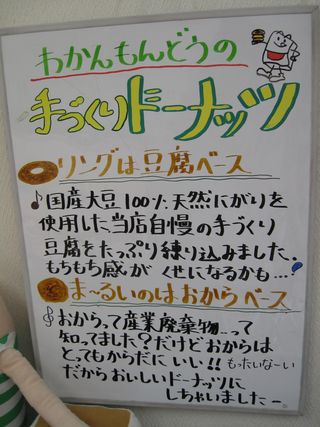 わかんもんどうの
手づくりドーナッツ
リングは豆腐ベース
♪国産大豆100%天然にがりを
使用した当店自慢の手づくり
豆腐をたっぷり練り込みました.
もちもち感が くせになるかも…!
ま〜るいのはおからベース
おからって産業廃棄物…って
知ってました?だけどおからは
とってもからだにいい!! もったいなーい
だからおいしいドーナッツに
しちゃいましたー.